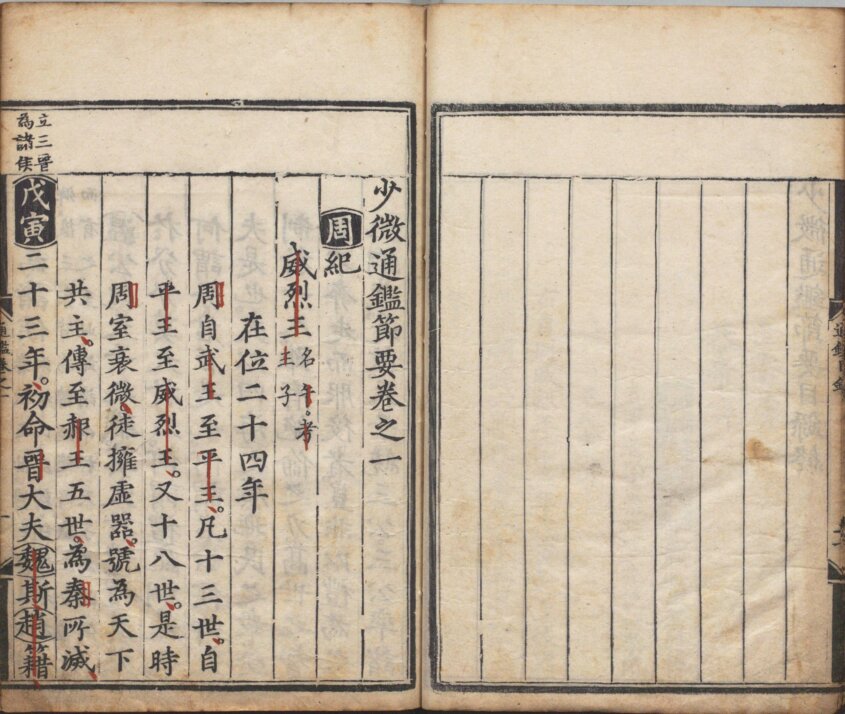 通鑑目錄
少微通鑑節要卷之一
周紀
威烈王名午。考
王子
在位二十四年
周自武王至平王。凡十三世。自
平王至威烈王。又十八世。是時
周室衰微、徒擁虛器、號為天下
共主。傳至赧王五世。為秦所滅、
立三晉
為諸侯
戊寅二十三年。初命晉大夫魏斯趙籍
通鑑卷之一